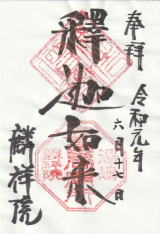 奉拝
令和元年
六月十七日
釋迦如来
麟祥院